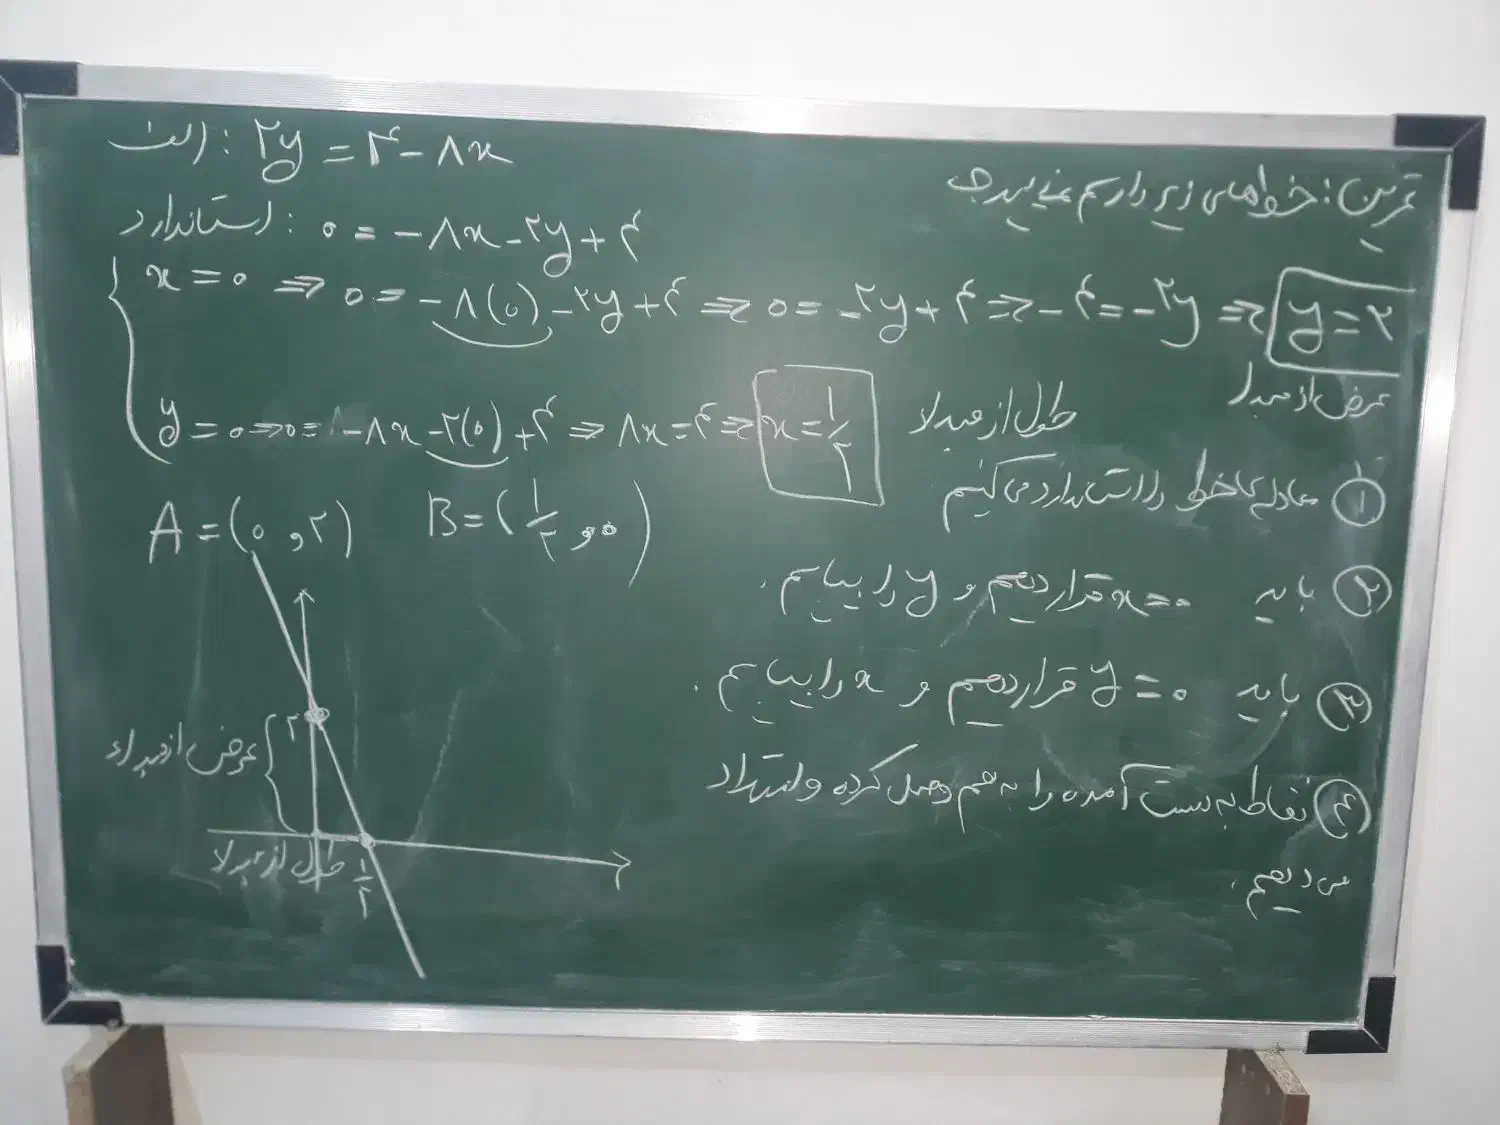 تمرین: خط‌های زیر را رسم نمایید.
الف: ۲y = ۴ - ۸x
استاندارد: ۰ = -۸x - ۲y + ۴
x = ۰ ⇒ ۰ = -۸(۰) - ۲y + ۴ ⇒ ۰ = -۲y + ۴ ⇒ -۴ = -۲y ⇒ y = ۲
عرض از مبدا
y = ۰ ⇒ ۰ = -۸x - ۲(۰) + ۴ ⇒ ۸x = ۴ ⇒ x = ۱/۲ طول از مبدا
A = (۰ , ۲) B = (۱/۲ , ۰)
① معادله خط را استاندارد می‌کنیم
② باید x = ۰ قرار دهیم و y را بیابیم.
③ باید y = ۰ قرار دهیم و x را بیابیم.
④ نقاط به دست آمده را به هم وصل کرده و امتداد
می‌دهیم.
عرض از مبداء ۲
طول از مبدا ۱/۲